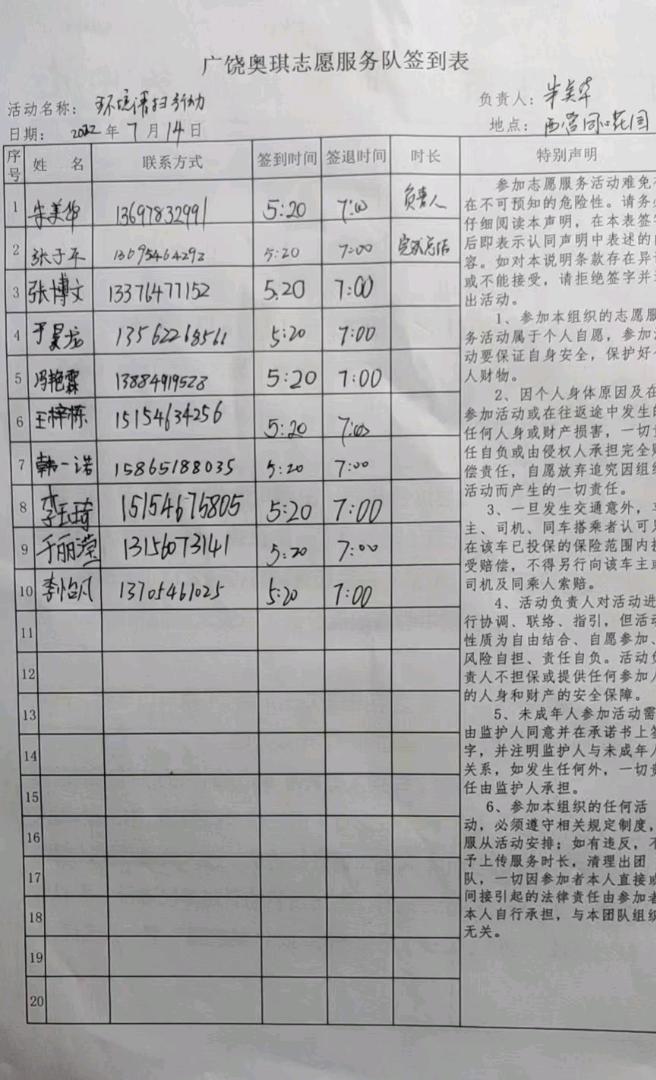 广饶奥琪志愿服务队签到表
活动名称： 环境清扫行动
负责人： 朱美华
日期： 2022年7月14日
地点： 西营同心花园
序号 姓 名 联系方式 签到时间 签退时间 时长 特别声明
1 朱美华 13697832991 5:20 7:00 负责人
2 张子平 13095464292 5:20 7:00 完成总结
3 张博文 13376477152 5:20 7:00
4 于昊龙 13562268561 5:20 7:00
5 冯艳霖 13884919528 5:20 7:00
6 王梓栋 15154634256 5:20 7:00
7 韩一诺 15865188035 5:20 7:00
8 李钰琦 15154675805 5:20 7:00
9 于丽滢 13156073141 5:20 7:00
10 李怡凡 13705461025 5:20 7:00
11
12
13
14
15
16
17
18
19
20
参加志愿服务活动难免存
在不可预知的危险性。请务必
仔细阅读本声明，在本表签字
后即表示认同声明中表述的内
容。如对本说明条款存在异议
或不能接受，请拒绝签字并
出活动。
1、参加本组织的志愿服
务活动属于个人自愿，参加活
动要保证自身安全，保护好个
人财物。
2、因个人身体原因及在
参加活动或在往返途中发生的
任何人身或财产损害，一切责
任自负或由侵权人承担完全赔
偿责任，自愿放弃追究因组织
活动而产生的一切责任。
3、一旦发生交通意外，车
主、司机、同车搭乘者认可只
在该车已投保的保险范围内接
受赔偿，不得另行向该车主或
司机及同乘人索赔。
4、活动负责人对活动进
行协调、联络、指引，但活动
性质为自由结合、自愿参加、
风险自担、责任自负。活动负
责人不担保或提供任何参加人
的人身和财产的安全保障。
5、未成年人参加活动需
由监护人同意并在承诺书上签
字，并注明监护人与未成年人
关系，如发生任何外，一切责
任由监护人承担。
6、参加本组织的任何活
动，必须遵守相关规定制度，
服从活动安排；如有违反，不
予上传服务时长，清理出团
队，一切因参加者本人直接或
间接引起的法律责任由参加者
本人自行承担，与本团队组织
无关。